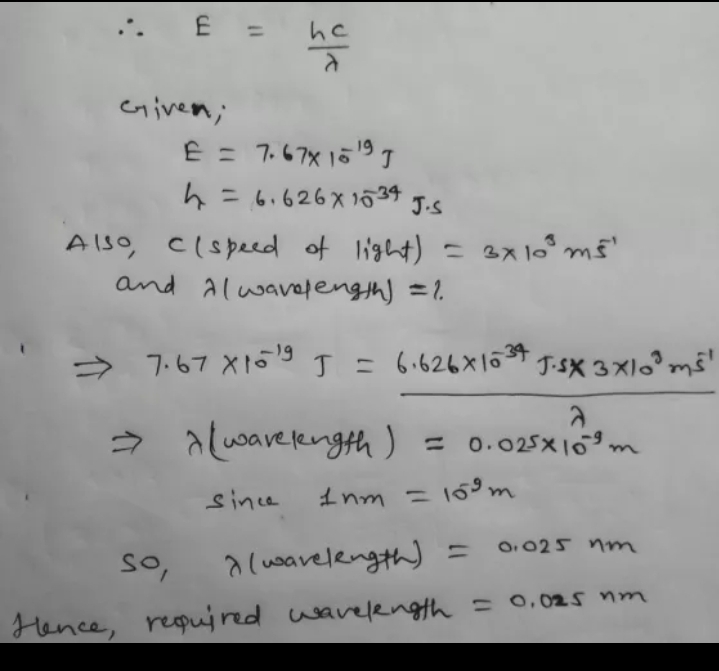 ∴ E = hc/λ
Given;
E = 7.67×10⁻¹⁹ J
h = 6.626×10⁻³⁴ J.s
Also, c(speed of light) = 3×10⁸ ms⁻¹
and λ(wavelength) = ?
⇒ 7.67×10⁻¹⁹ J = 6.626×10⁻³⁴ J.s×3×10⁸ ms⁻¹/λ
⇒ λ(wavelength) = 0.025×10⁻⁹ m
since 1nm = 10⁻⁹ m
so, λ(wavelength) = 0.025 nm
Hence, required wavelength = 0.025 nm